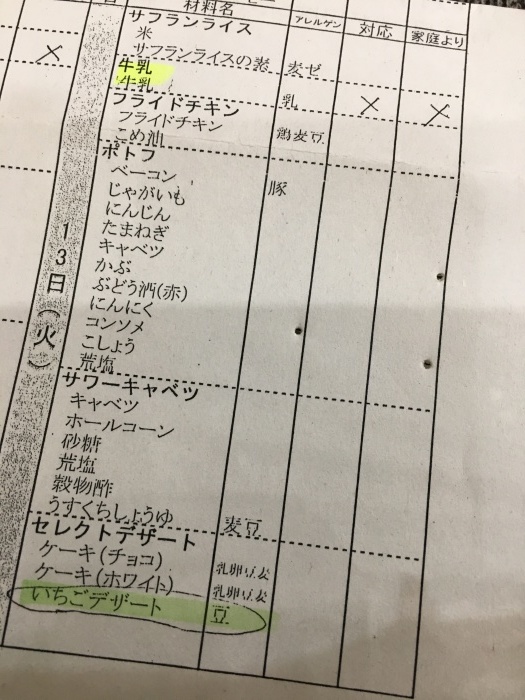 材料名 アレルゲン 対応 家庭より
サフランライス
米
サフランライスの素 麦ゼ
牛乳
牛乳 乳 × ×
フライドチキン
フライドチキン 鶏麦豆
こめ油
ポトフ
ベーコン 豚
じゃがいも
にんじん
たまねぎ
キャベツ
かぶ
ぶどう酒(赤)
にんにく
コンソメ
こしょう
荒塩
サワーキャベツ
キャベツ
ホールコーン
砂糖
荒塩
穀物酢
うすくちしょうゆ 麦豆
セレクトデザート
ケーキ(チョコ) 乳卵豆麦
ケーキ(ホワイト) 乳卵豆麦
いちごデザート 豆
13日(火)
×